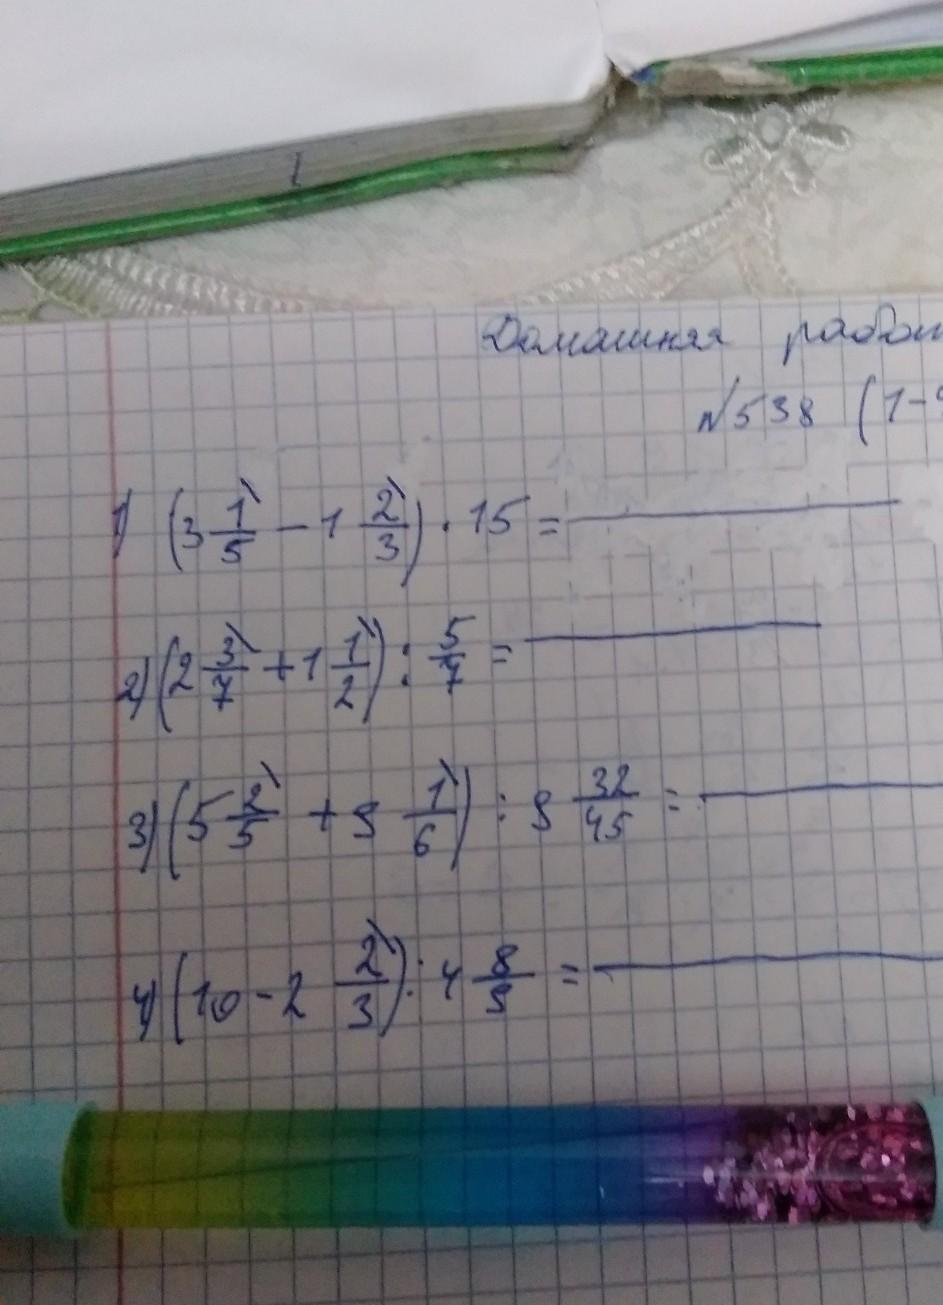 Домашняя
№538 (1-
1) (3 1/5 - 1 2/3) · 15 =
2) (2 3/7 + 1 1/2) : 5/7 =
3) (5 2/5 + 9 1/6) : 9 32/45 =
4) (10 - 2 2/3) : 4 8/9 =